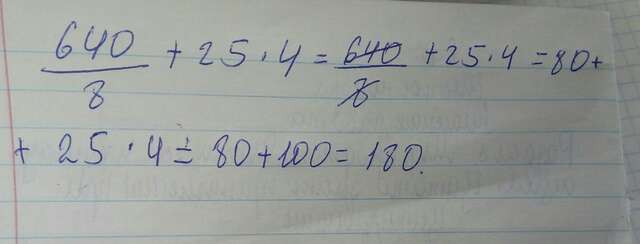 640/8 + 25 · 4 = 640/8 + 25 · 4 = 80 +
+ 25 · 4 = 80 + 100 = 180.